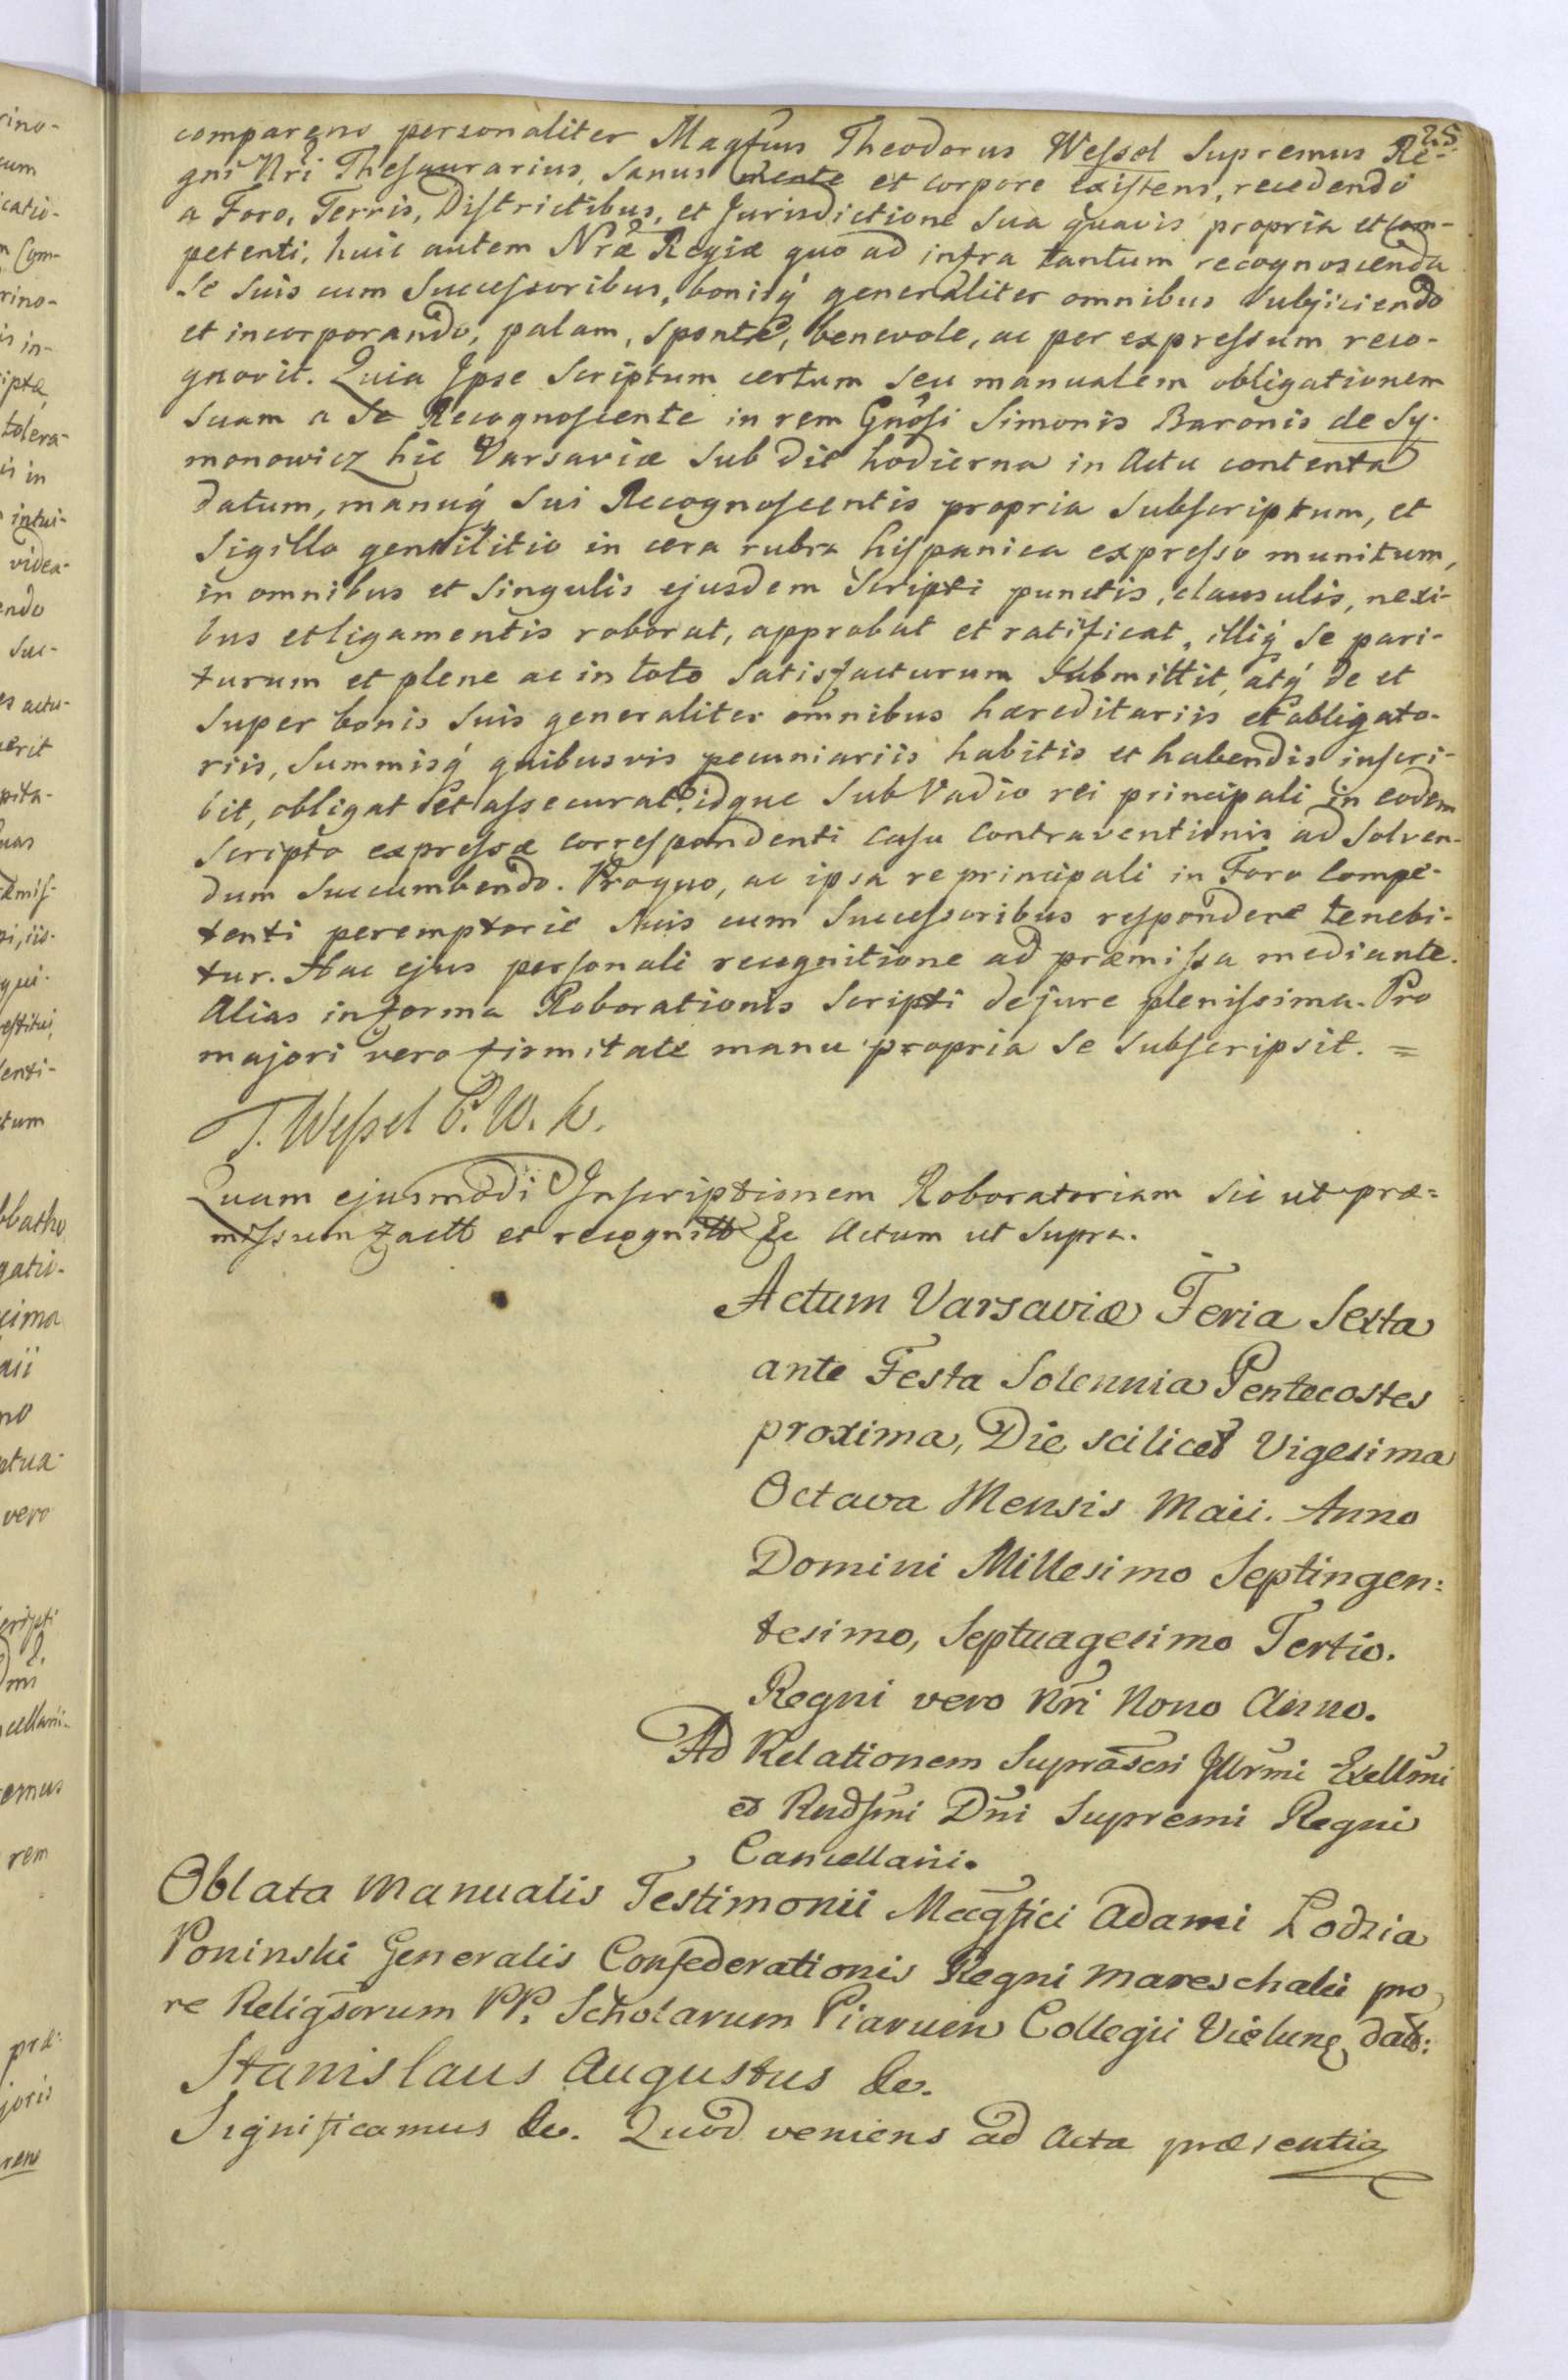 25.
comparens personaliter Magfcus Theodorus Wessel Supremus Re-
gni Nri Thesaurarius, sanus mente et corpore existens, recedendo
a Foro, Terris, Districtibus, et Jurisdictione sua quavis propria et com-
petenti, huic autem Nræ Regiæ quo ad infra tantum recognoscenda
se suis cum successoribus, bonisq́ generaliter omnibus subjiciendo
et incorporando, palam, sponte, benevole, ac per expressum reco-
gnovit. Quia Ipse scriptum certum seu manualem obligationem
suam a se Recognoscente in rem Gnosi Simonis Baronis de Sy-
monowicz hic Varsaviæ sub die hodierna in Actu contenta
datum, manuq́ sui Recognoscentis propria subscriptum, et
sigillo gentilitio in cera rubra hispanica expresso munitum,
in omnibus et singulis ejusdem scripti punctis, clausulis, nexi-
bus et ligamentis roborat, approbat et ratificat, illiq́ se pari-
turum et plene ac in toto satisfacturum submittit, atq́ de et
super bonis suis generaliter omnibus hæreditariis et obligato-
riis, summisq́ quibusvis pecuniariis habitis et habendis inscri-
bit, obligat et assecurat: idque sub Vadio rei principali in eodem
scripto expressæ correspondenti casu contraventionis ad solven-
dum succumbendo. Proquo, ac ipsa re principali in Foro compe-
tenti peremptorie suis cum successoribus respondere tenebi-
tur. Hac ejus personali recognitione ad præmissa mediante.
Alias in forma Roborationis scripti de jure plenissima. Pro
majori vero firmitate manu propria se subscripsit. =
T. Wessel P. W. K.
Quam ejusmodi Inscriptionem Roboratoriam sic ut præ=
missum factt et recognitt &c Actum ut supra.
Actum Varsaviæ Feria Sexta
ante Festa Solennia Pentecostes
proxima, Die scilicet Vigesima
Octava Mensis Maii. Anno
Domini Millesimo Septingen:
tesimo, Septuagesimo Tertio.
Regni vero Nri Nono Anno.
Ad Relationem Suprascri Jllrmi Exellmi
et Rndsmi Dni Supremi Regni
Cancellarii.
Oblata Manualis Testimonii Magfici Adami Lodzia
Poninski Generalis Confederationis Regni Mareschalci pro
re Religsorum PP. Scholarum Piarum Collegii Vielung datt:
Stanislaus Augustus &c.
Significamus &c. Quod veniens ad Acta præsentia